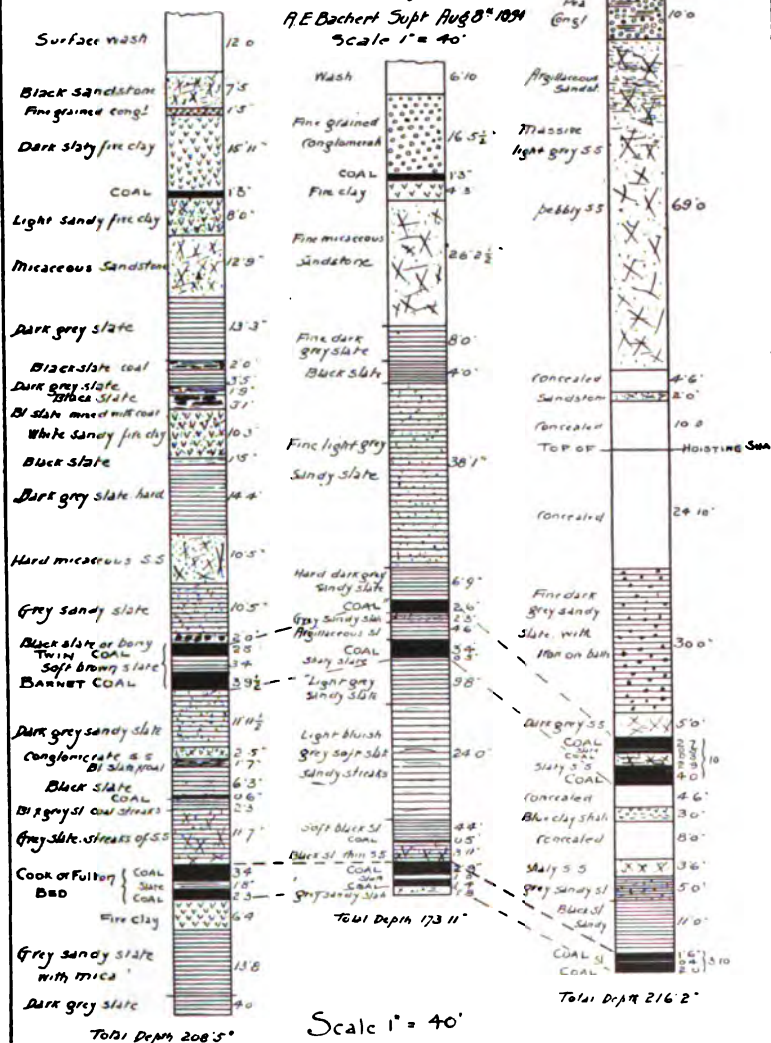 A.E Bachert Supt Aug 8th 1894
Scale 1" = 40'
Surface wash 12 0
Black sandstone 7'5
Fine grained congl 1'5"
Dark slaty fire clay 15'11"
COAL 1'8"
Light sandy fire clay 8'0"
Micaceous Sandstone 12'9"
Dark grey slate 13'3"
Black slate coal 2'0"
Dark grey slate 3'5"
Black slate 1'9"
Bl slate mixed with coal 3'1"
White sandy fire clay 10'3"
Black slate 1'5"
Dark grey slate hard 14'4"
Hard micaceous S.S 10'5"
Grey sandy slate 10'5"
Black slate or bony 2'0"
TWIN COAL
Soft brown slate 3'4
BARNET COAL 3'9½
Dark grey sandy slate 11'11½
Conglomerate s s 2'5"
Bl slate & coal 1'7"
Black slate 6'3"
COAL 0'6"
Bl & grey sl coal streaks 2'3
Grey slate. streaks of SS 11'7"
COOK or FULTON BED
COAL 3'4
Slate 1'8"
COAL 2'3
Fire Clay 6'4
Grey sandy slate with mica 13'8
Dark grey slate 4'0
Total Depth 208'5"
Wash 6'10
Fine grained conglomerate 16'5½
COAL 1'3"
Fire clay 4'3
Fine micaceous sandstone
Fine dark grey slate 8'0"
Black slate 4'0"
Fine light grey Sandy slate 38'1"
Hard dark grey sandy slate 6'9"
COAL 2'6"
Grey Sandy slate 2'3"
Argillaceous sl 4'6
COAL 3'4
Slaty slate
Light grey sandy slate 9'8"
Light bluish grey soft slat sandy streaks 24'0"
Soft black sl 4'4"
COAL 0'5"
Black sl thin SS 3'11"
COAL
Slate
COAL
Grey sandy slate
Total Depth 173 11"
Congl 10'0
Argillaceous Sandst.
Massive light grey S S
pebbly SS
69'0
Concealed 4'6"
Sandston 2'0"
Concealed 10 0
TOP OF HOISTING SHA
Concealed 24 10"
Fine dark grey sandy slate. with Iron on bath 30'0"
Dark grey SS 5'0"
COAL
Slate
COAL
Slaty S S
COAL 4'0
10
Concealed 4'6
Blue clay shali 3'0
Concealed 8'0
Shaly S S 3'6"
grey Sandy sl 5'0"
Black sl Sandy 11'0"
COAL 1'6"
Sl 0'4
COAL 2'0
3'10
Total Depth 216'2"
Scale 1" = 40'